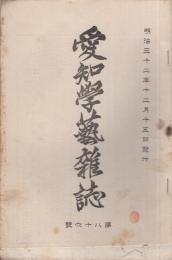 明治三十二年十二月十五日發行
愛知學藝雜誌
第八十六號